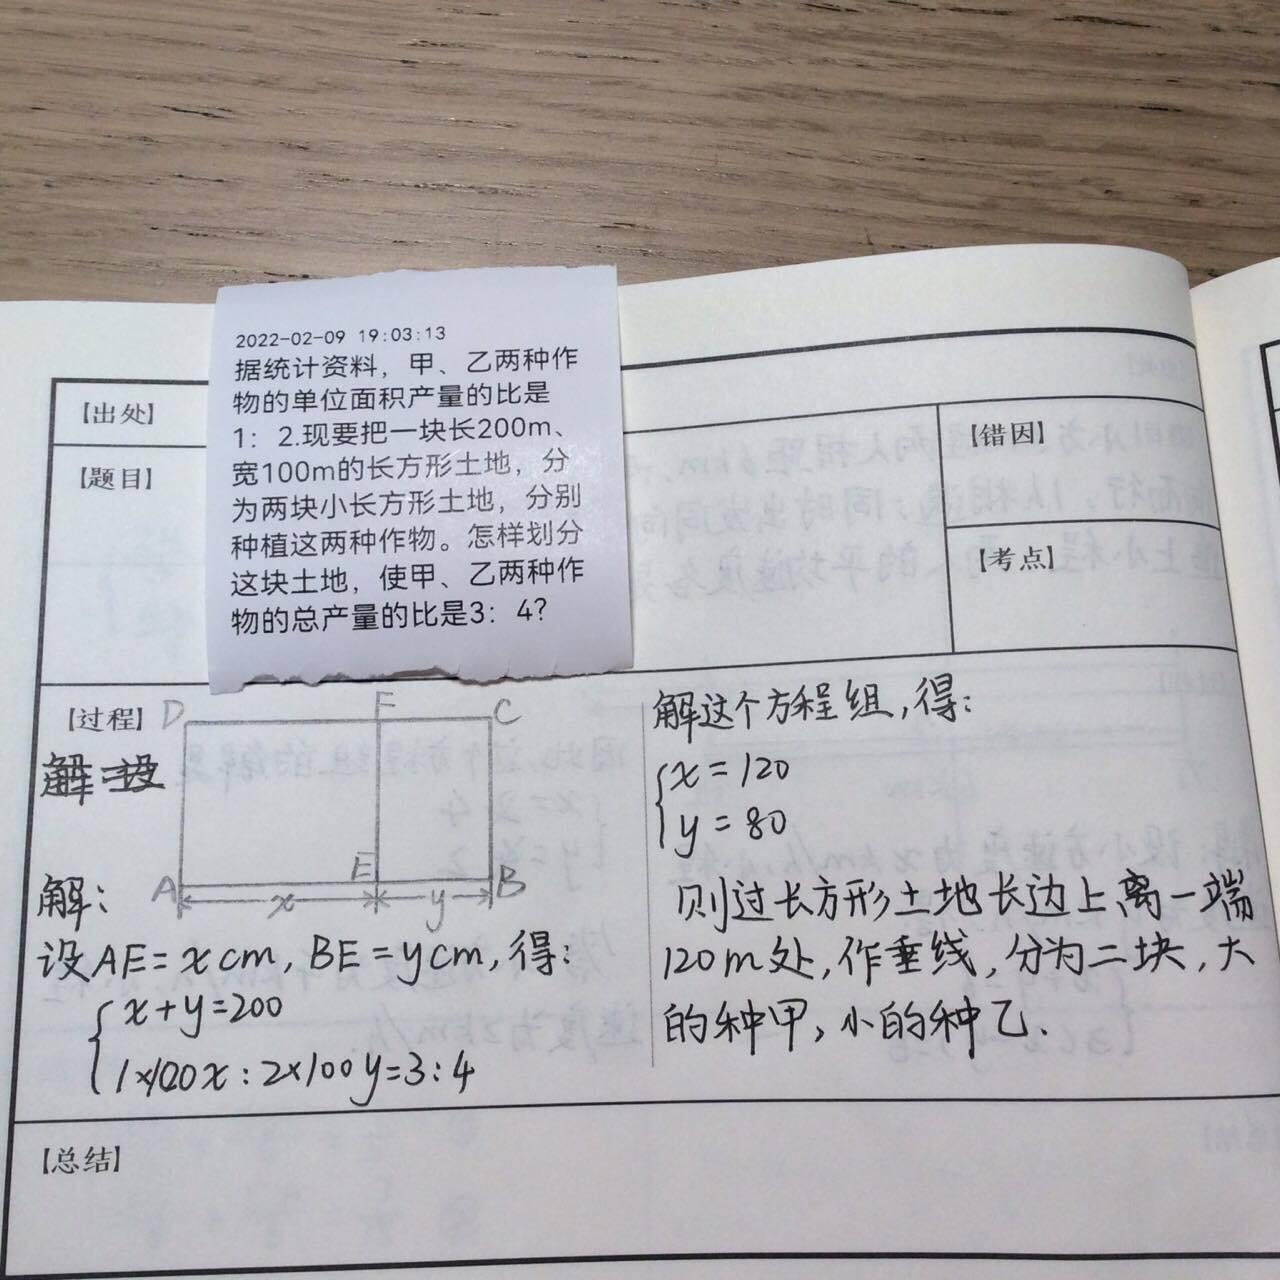 2022-02-09 19:03:13
据统计资料，甲、乙两种作
物的单位面积产量的比是
1：2.现要把一块长200m、
宽100m的长方形土地，分
为两块小长方形土地，分别
种植这两种作物。怎样划分
这块土地，使甲、乙两种作
物的总产量的比是3：4?
【出处】
【题目】
【错因】
【考点】
【过程】
D F C
A E B
x y
解：
设AE=xcm,BE=ycm,得：
x+y=200
1×100x：2×100y=3：4
解这个方程组,得：
x=120
y=80
则过长方形土地长边上离一端
120m处,作垂线,分为二块,大
的种甲,小的种乙.
【总结】